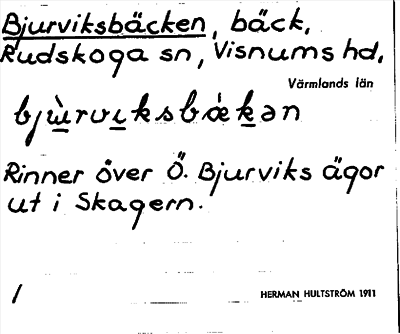 Bjurviksbäcken, bäck,
Rudskoga sn, Visnums hd.
Värmlands län
bjùrviksbǽkən
Rinner över Ö. Bjurviks ägor
ut i Skagern.
/
HERMAN HULTSTRÖM 1911